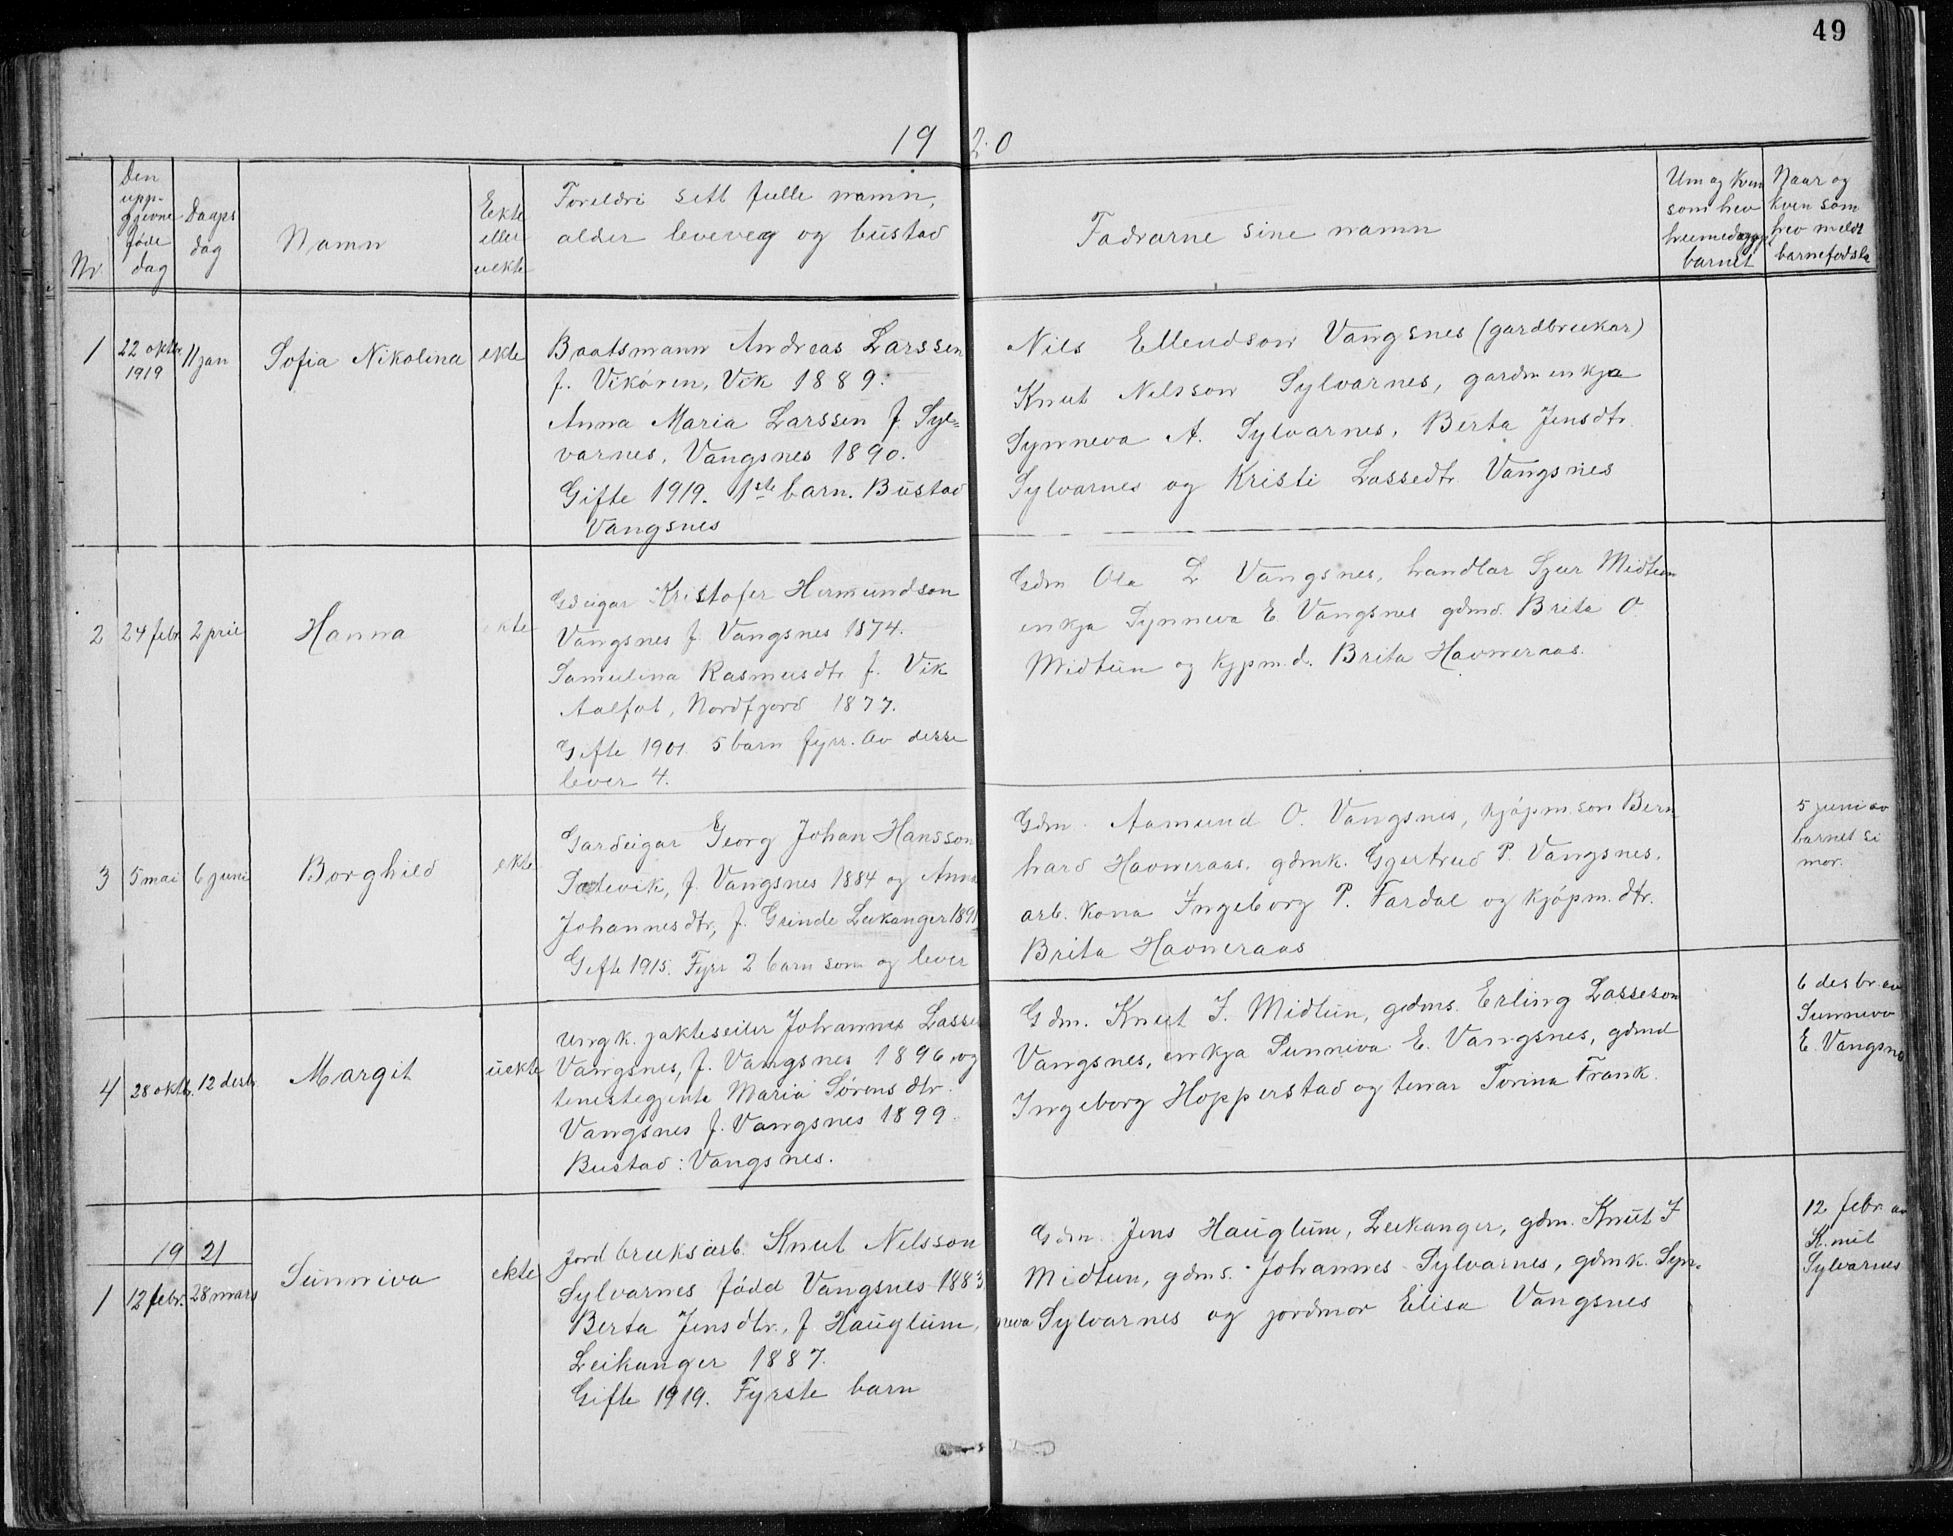 49
19 20
Nr.
Den
upp-
gjevne
føde
dag
Daaps
dag
Namn
Ekte
eller
uekte
Foreldri sitt fulle namn,
alder leveveg og bustad
Fadrarne sine namn
Um og kven
som hev
heimedøypt
barnet
Naar og
kven som
hev meldt
barnefødsla
1
22 oktbr.
1919
11 jan
Sofia Nikolina
ekte
Baatsmann Andreas Larssen
f. Vikøren, Vik 1889.
Anna Maria Larssen f. Syl-
varnes, Vangsnes 1890.
Gifte 1919. 1ste barn. Bustad
Vangsnes
Nils Ellendson Vangsnes (gardbrukar)
Knut Nilsson Sylvarnes, gardm enkja
Synneva A. Sylvarnes, Berta Jensdtr.
Sylvarnes og Kristi Lassedtr. Vangsnes
2
24 febr.
2 pril
Hanna
ekte
Gdeigar Kristofer Hermundson
Vangsnes f. Vangsnes 1874.
Samulina Rasmusdtr f. Vik
Aalfot, Nordfjord 1877.
Gifte 1901. 5 barn fyrr. Av desse
lever 4.
Gdm Ola L Vangsnes, handlar Sjur Midtun
enkja Synneva E. Vangsnes gdmd. Brita O.
Midtun og kjpm.d. Brita Havneraas.
3
5 mai
6 juni
Borghild
ekte
Gardeigar Georg Johan Hansson
f. Vangsnes 1884 og Anna
Johannesdtr, f. Grinde Leikanger 1891
Gifte 1915. Fyrr 2 barn som og lever
Gdm. Aamund O. Vangsnes, kjøpm.son Bern
hard Havneraas, gdmk. Gjertrud P. Vangsnes,
arb. kona Ingeborg P. Fardal og kjøpm.dtr.
Brita Havneraas
5 juni av
barnet si
mor.
4
28 oktb.
12 desb.
Margit
uekte
Ungk. jakteseilar Johannes Lasse
Vangsnes, f. Vangsnes 1896, og
tenestegjenta Maria Sørensdtr.
Vangsnes f. Vangsnes 1899.
Bustad: Vangsnes.
Gdm. Knut I. Midtun, gdms. Erling Lasseson
Vangsnes, enkja Sunneva E. Vangsnes, gdmd
Ingeborg Hopperstad og tenar Torina Frank.
6 desbr. av
Sunneva
E. Vangsnes
19 21
1
12 febr.
28 mars
Sunniva
ekte
Jordbruksarb. Knut Nilsson
Sylvarnes fødd Vangsnes 1883,
Berta Jensdtr, f. Hauglum,
Leikanger 1887.
Gifte 1919. Fyrste barn
Gdm. Jens Hauglum, Leikanger, gdm. Knut I
Midtun, gdms. Johannes Sylvarnes, gdmk. Syn-
neva Sylvarnes og jordmor Elisa Vangsnes
12 febr. av
Knut
Sylvarnes